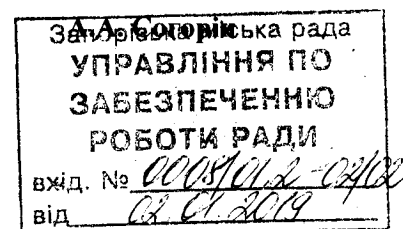 А.А. Согорін
Запорізька міська рада
УПРАВЛІННЯ ПО
ЗАБЕЗПЕЧЕННЮ
РОБОТИ РАДИ
вхід. № 0008/01.2-02/02
від 02.01.2019